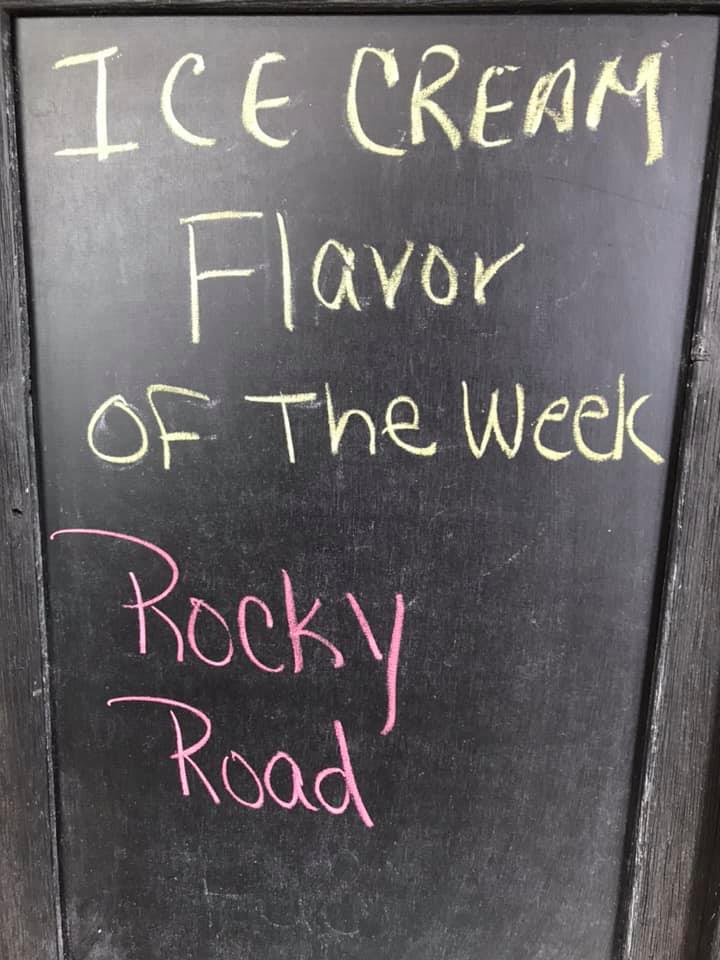 ICE CREAM
Flavor
OF The Week
Rocky
Road